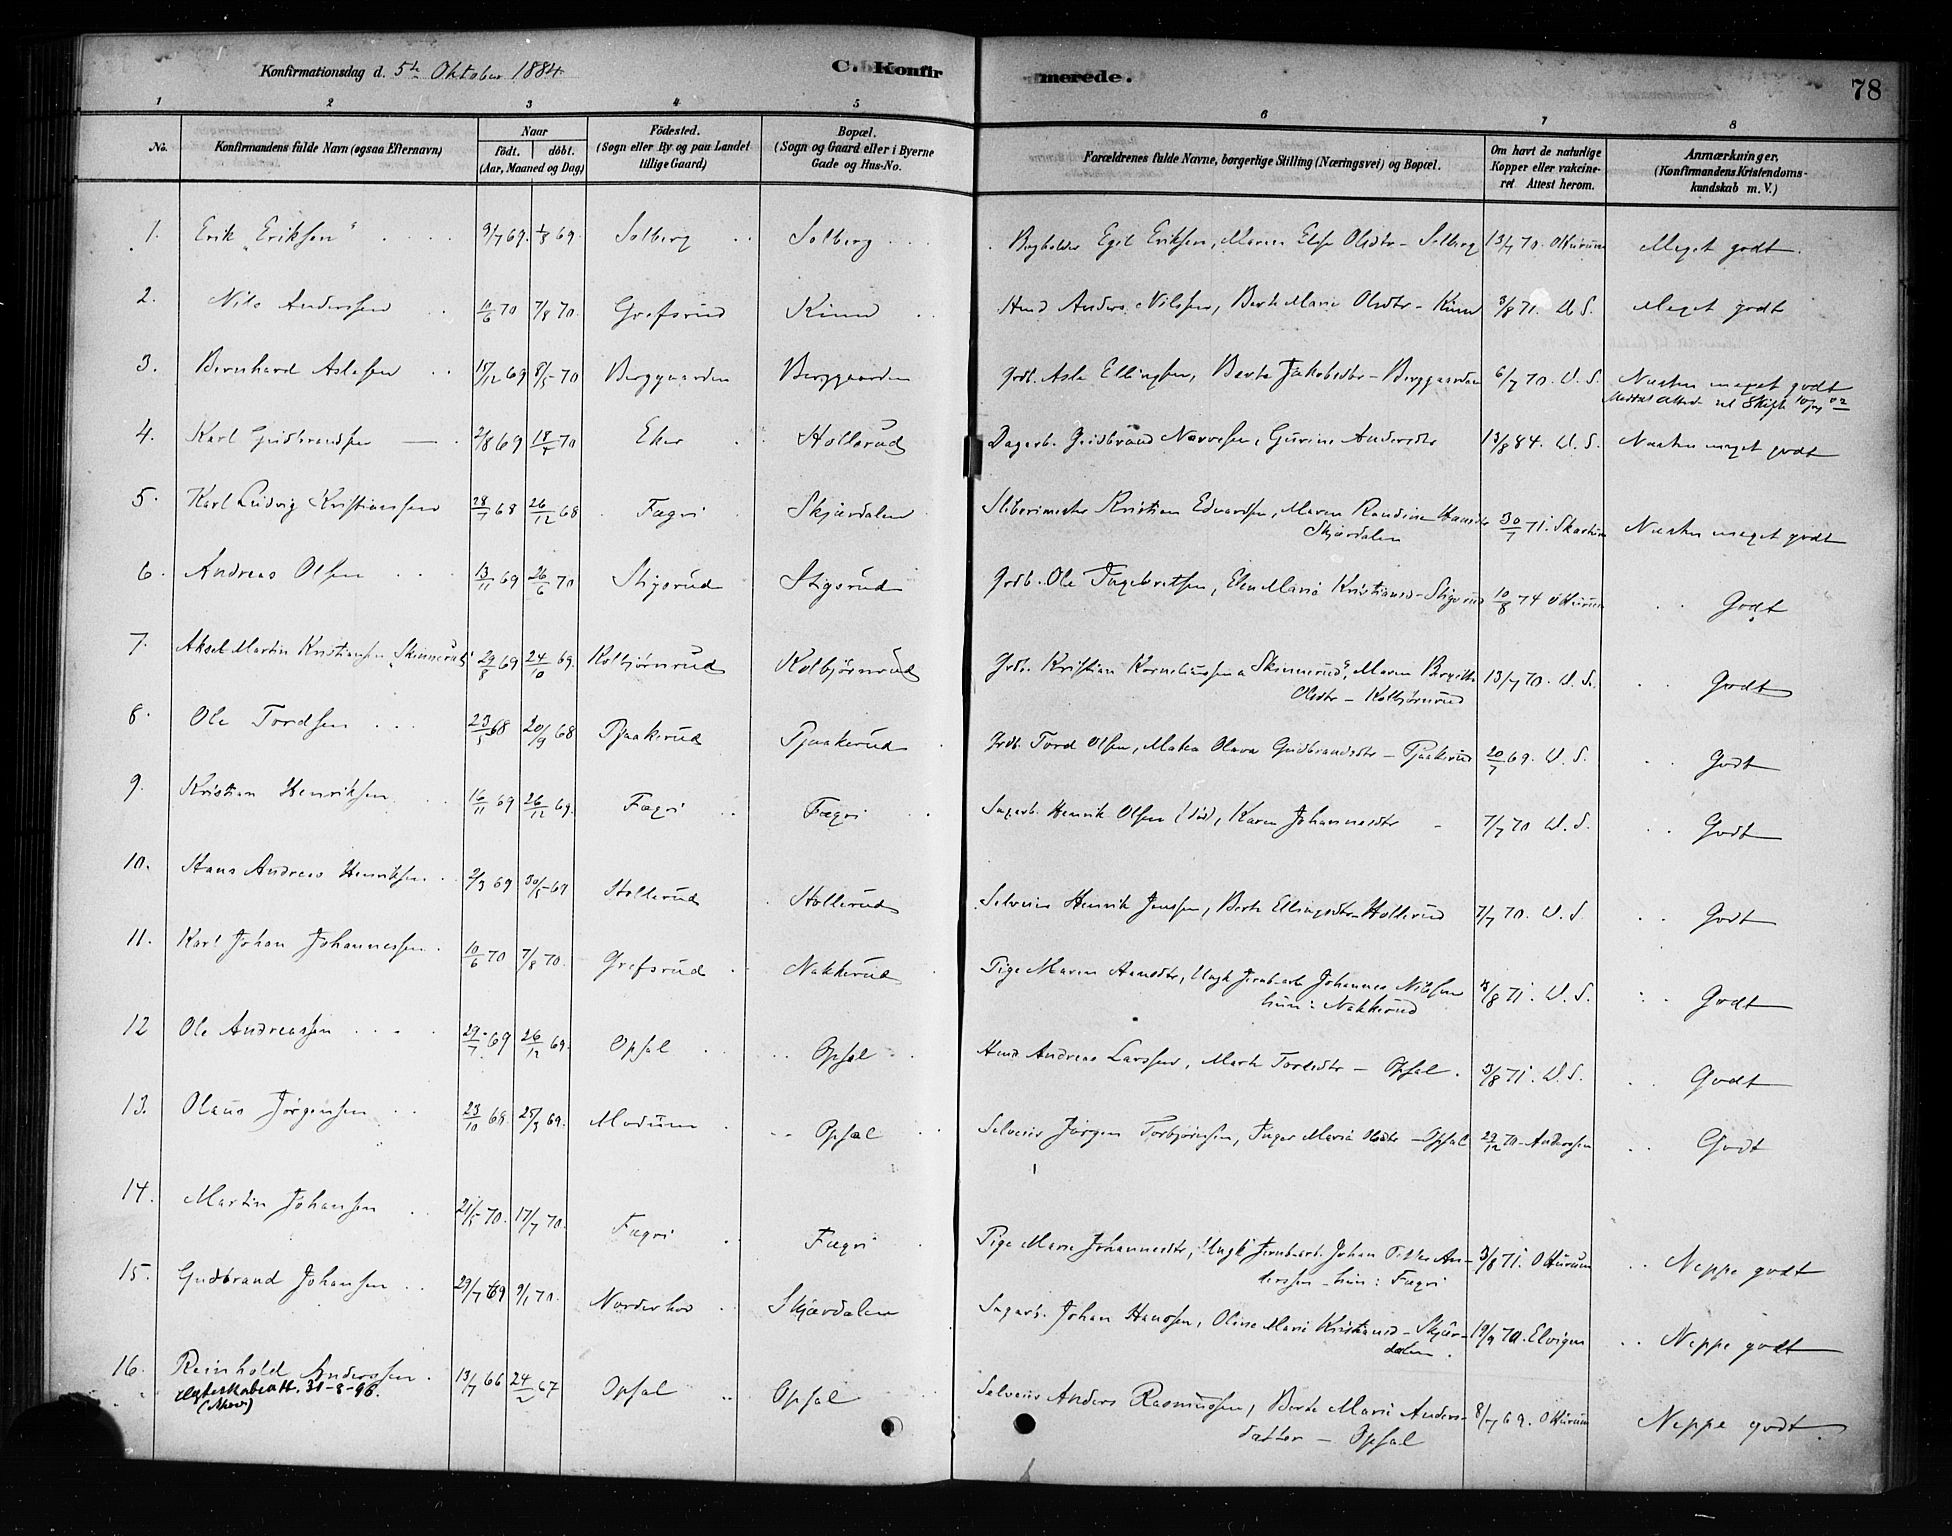 Konfirmationsdag d. 5te Oktober 1884
C. Konfirmerede.
78
1 2 3 4 5 6 7 8
No. Konfirmandens fulde Navn (ogsaa Efternavn) Naar født. døbt. (Aar, Maaned og Dag) Födested. (Sogn eller By og paa Landet tillige Gaard) Bopæl. (Sogn og Gaard eller i Byerne Gade og Hus-No. Forældrenes fulde Navne, borgerlige Stilling (Næringsvei) og Bopæl. Om havt de naturlige Kopper eller vakcineret Attest herom. Anmærkninger. (Konfirmandens Kristendomskundskab m. V.)
1. Erik "Eriksen" 9/7 69. 1/8 69. Solberg Solberg Egil Eriksen, Maren Olsdtr - Solberg 13/7 70. OHurum Meget godt.
2. Nils Anderssen 10/6 70 7/8 70. Grefsrud Anders Nilssen, Berte Marie Olsdtr - 3/8 71. U. S. Meget godt
3. Bernhard Aslesen 15/12 69 8/5 70 Berggaarden Berggaarden Grdb. Asle Ellingsen, Berte Jakobsdtr - Berggaarden 6/7 70. U. S. Næsten meget godt
4. Karl Gudbrandsen 2/8 69 18/4 70 Eker Hollerud Dagarb. Gudbrand Narvesen, Gurine Andersdtr 13/8 84. U. S. Næsten meget godt
5. Karl Ludvig Kristianssen 28/7 68 26/12 68 Fægri Skjærdalen Sliberimester Kristian Edvardsen, Maren Randine Hansdtr
Skjærdalen 30/7 71. Næsten meget godt
6. Andreas Olsen 13/11 69 26/6 70 Stigsrud Stigsrud Grdb. Ole Ingebretsen, Elen Maria Kristiansd - Stigsrud 10/8 74 OHurum Godt
7. Aksel Martin Kristiansen "Skinnerud" 29/8 69 24/10 69. Kolbjørnrud Kolbjørnrud Grdb. Kristian Korneliussen "Skinnerud", Maren Birgitte
Olsdtr - Kolbjørnrud 13/7 70. U. S. Godt
8. Ole Tordsen 23/5 68 20/9 68 Pjaakerud Pjaakerud Grdb. Tord Olsen, Mathea Olava Gudbrandsdtr - Pjaakerud 20/7 69. U. S. Godt
9. Kristian Henriksen 16/11 69 26/12 69. Fægri Fægri Sagarb. Henrik Olsen (død), Karen Johannesdtr - 7/7 70 U. S. Godt
10. Hans Andreas Henriksen 2/3 69 30/5 69 Hollerud Hollerud Selveier Henrik Jenssen, Berte Ellingsdtr - Hollerud 7/7 70. U. S Godt
11. Karl Johan Johannessen 10/6 70 7/8 70. Grefsrud Nakkerud Pige Maren Hansdtr, Ungk. Jernb.arb. Johannes Nilssen
hun: Nakkerud 3/8 71. U. S. Godt
12 Ole Andreassen 29/7 69 26/12 69. Opsal Opsal Andreas Larssen, Marte Toresdtr - Opsal. 3/8 71. U. S. Godt
13. Olaus Jørgensen 23/10 68. 25/3 69. Modum Opsal Selveier Jörgen Torbjørnsen, Inger Maria Olsdtr - Opsal 29/12 70 - Anderssen Godt
14. Martin Johansen 21/5 70. 17/7 70. Fægri Fægri Pige Marie Johannesdtr, Ungk. Jernb.arb. Johan Anderssen -
hun: Fægri 3/8 71. OHurum Neppe godt
15. Gudbrand Johansen 29/7 69 9/1 70. Norderhov Skjærdalen Sagarb. Johan Hanssen, Oline Marie Kristiansd - Skjærdalen. 19/9 70. Elvigen Neppe godt
16. Reinhold Anderssen 13/7 66 24/2 67 Opsal Opsal Selveier Anders Rasmussen, Berte Marie Andersdatter -
Opsal 8/7 69. OHurum Neppe godt.
31-8-96.